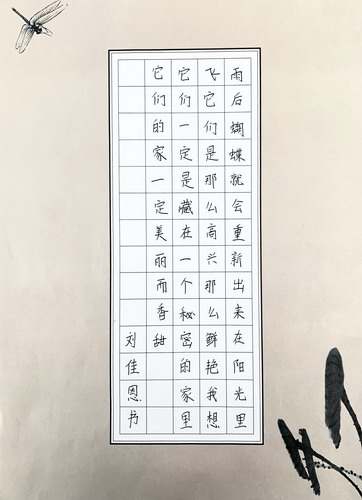 雨后蝴蝶就会重新出来在阳光里
飞它们是那么高兴那么鲜艳我想
它们一定是藏在一个秘密的家里
它们的家一定美丽而香甜
刘佳恩书